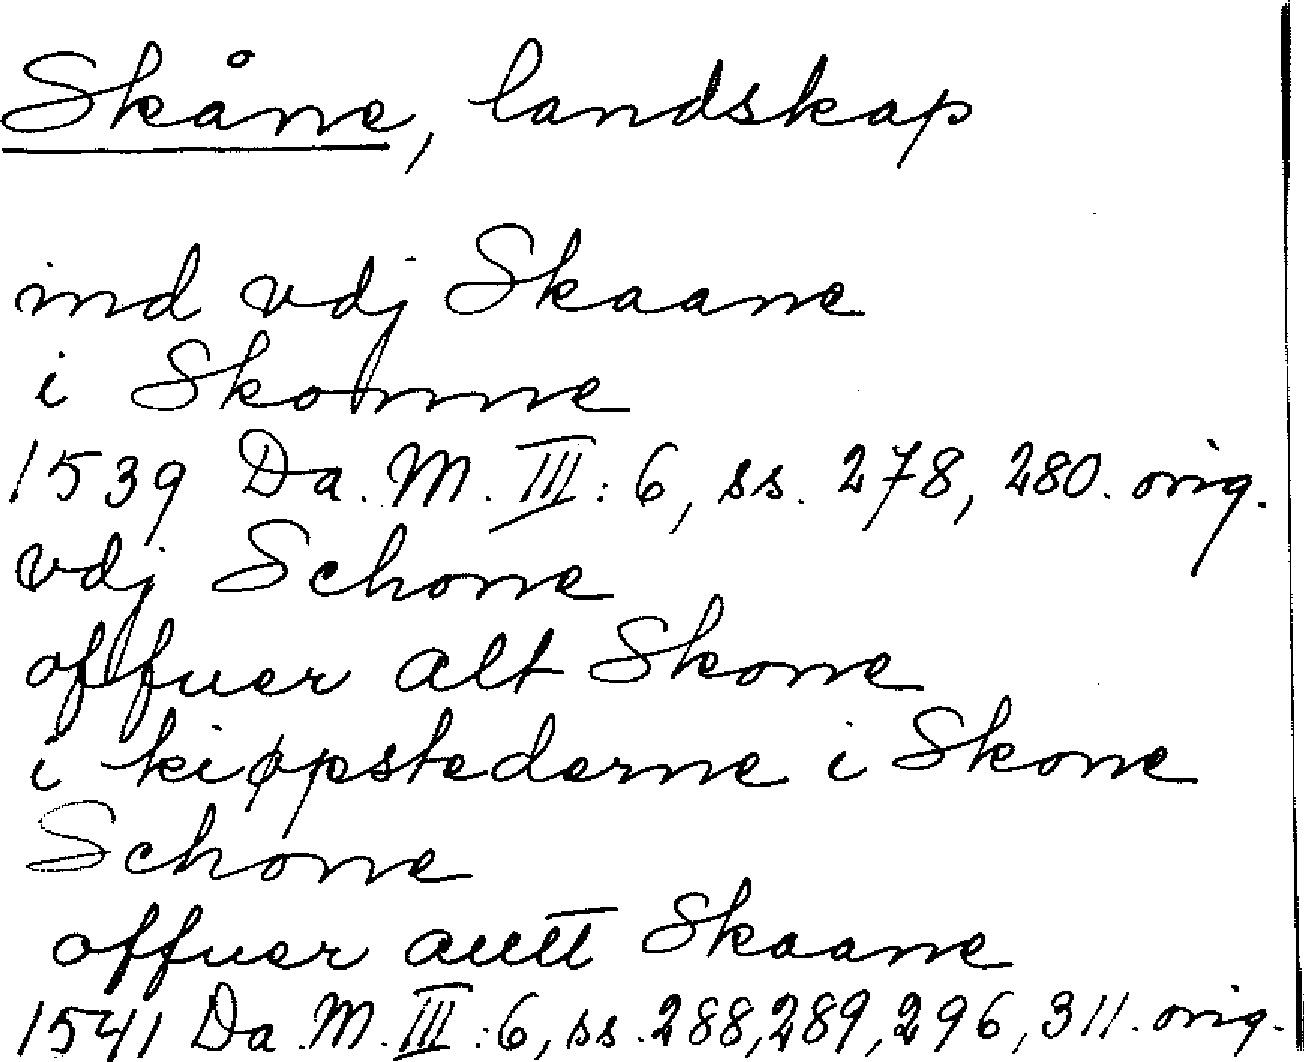 Skåne, landskap
ind vdj Skaane
i Skonne
1539 Da. M. III: 6, ss. 278, 280. orig.
vdj Schone
offuer alt Skone
i kiøpstederne i Skone
Schone
offuer Skaane
1541 Da. M. III: 6, ss. 288, 289, 296, 311. orig.